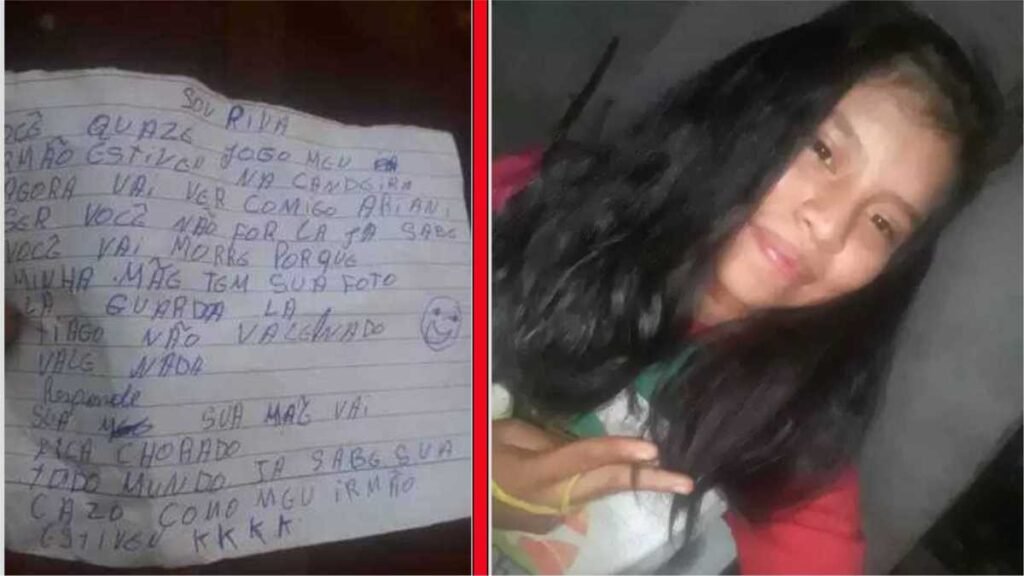 SOU RIVA
VOCÊ QUAZE
IRMÃO ESTIVEU JOGO MEU
NA CANDEIRA
AGORA VAI VER COMIGO ARIANI
SER VOCÊ NÃO FOR LA JA SABE
VOCÊ VAI MORRE PORQUE
MINHA MÃE TEM SUA FOTO
LA GUARDA LA
TIAGO NÃO VALENADO
VALE NADA
Responde
SUA SUA MÃE VAI
FICA CHORADO
TODO MUNDO JA SABE SUA
CAZO COMO MEU IRMÃO
ESTIVEU KKKK